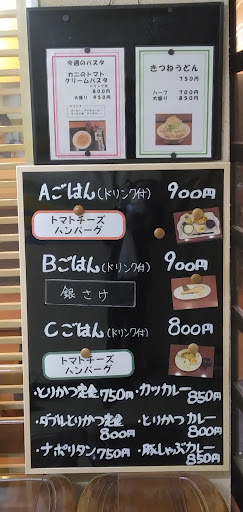 今週のパスタ
カニのトマト
クリームパスタ
ドリンク付
800円
大盛り 950円
きつねうどん
750円
ハーフ 700円
大盛り 850円
Aごはん(ドリンク付) 900円
トマトチーズ
ハンバーグ
Bごはん(ドリンク付) 900円
銀さけ
Cごはん(ドリンク付) 800円
トマトチーズ
ハンバーグ
・とりかつ定食750円
・カツカレー850円
・ダブルとりかつ定食800円
・とりかつカレー800円
・ナポリタン750円
・豚しゃぶカレー850円